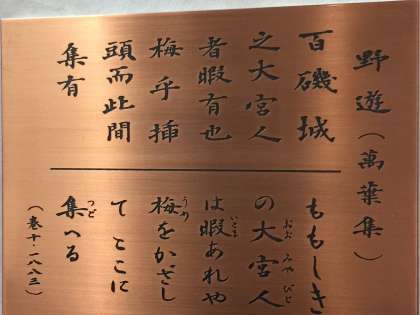 野遊（萬葉集）
百礒城
之大宮人
者暇有也
梅乎挿
頭而此間
集有
ももしき
の大宮人
おおみやびと
は暇あれや
いとま
梅をかざし
うめ
て ここに
集へる
つど
（巻十 一八八三）